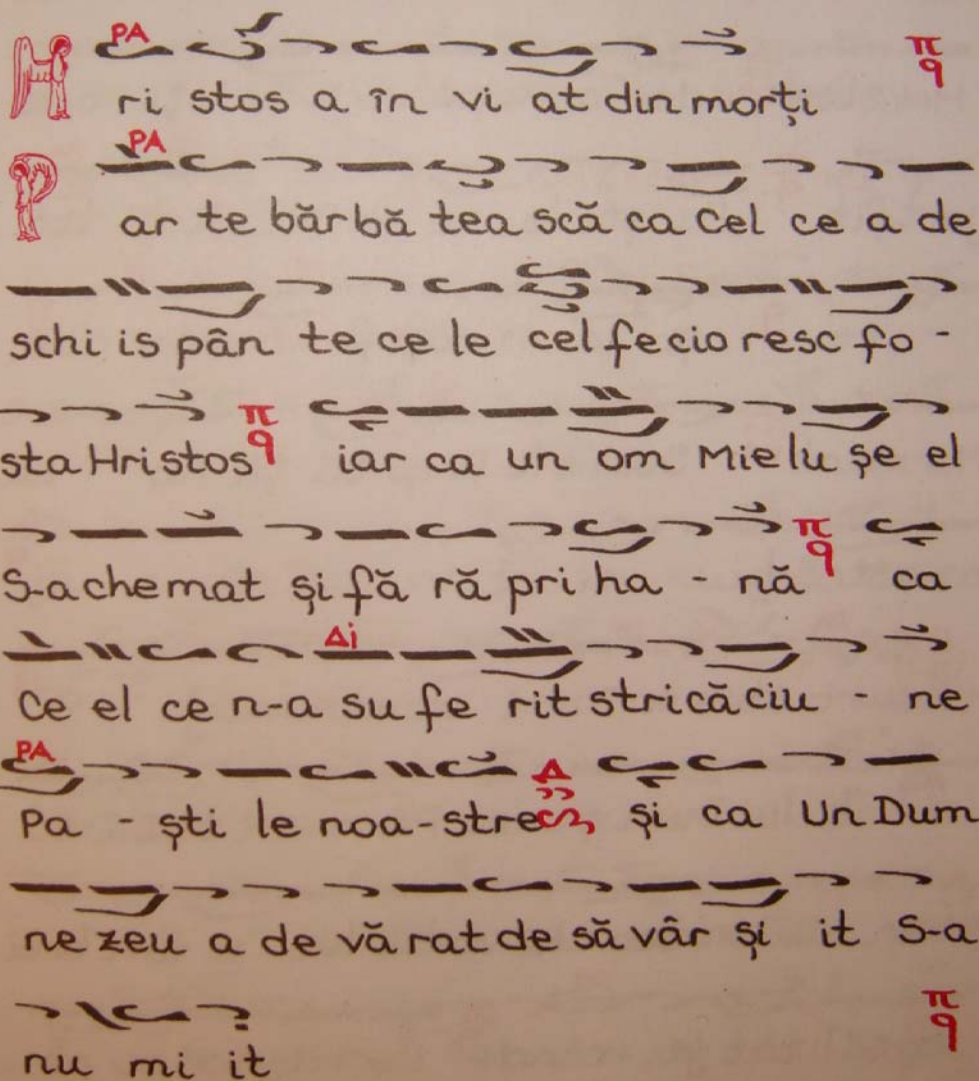 PA π q
H ri stos a în vi at din morți
PA
P ar te bărbă tea scă ca Cel ce a de
schi is pân te ce le cel fecio resc fo -
sta Hri stos π q iar ca un om Mie lu șe el
S-a chemat și fă ră pri ha - nă π q ca
Δi
ce el ce n-a su fe rit stricăciu - ne
PA Δ
Pa - ști le noa-stre și ca Un Dum
ne zeu a de vă rat de să vâr și it S-a
nu mi it π q